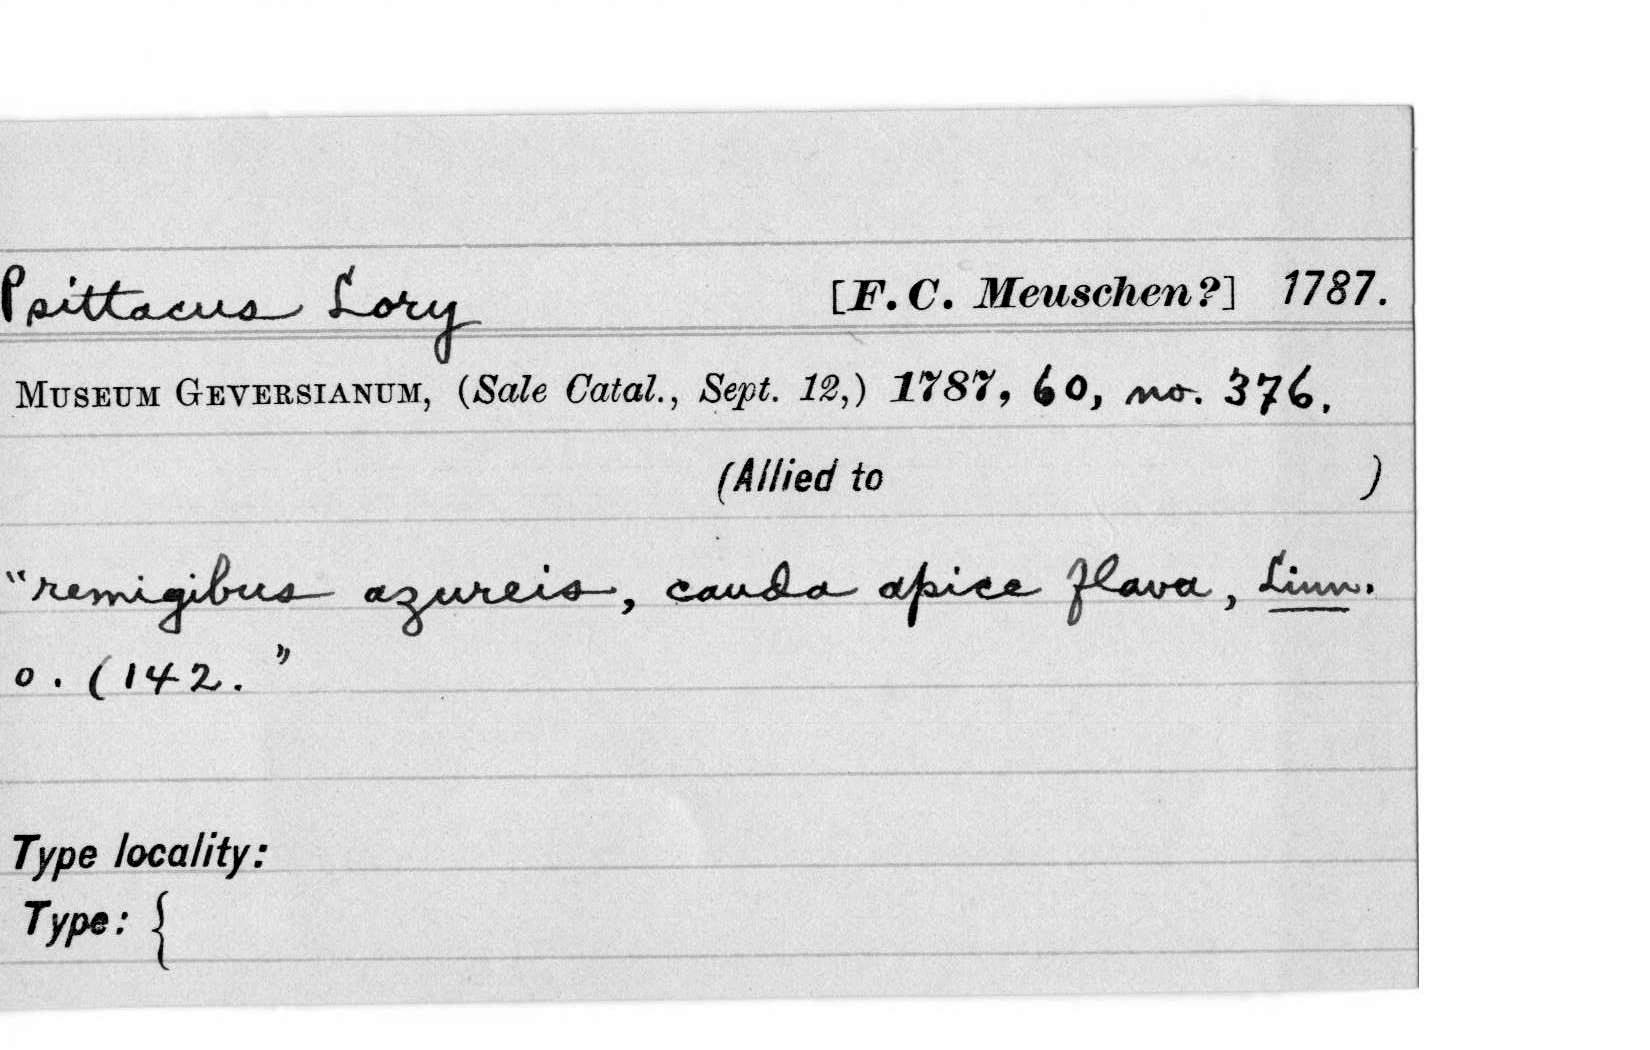 Psittacus Lory [F. C. Meuschen?] 1787.
MUSEUM GEVERSIANUM, (Sale Catal., Sept. 12,) 1787, 60, no. 376.
(Allied to )
"remigibus azureis, cauda apice flava, Linn.
o. (142."
Type locality:
Type: {